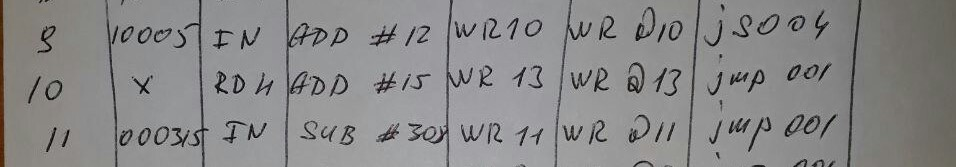 9 10005 IN ADD #12 WR10 WR @10 js 004
10 X RD 4 ADD #15 WR 13 WR @13 jmp 001
11 000315 IN SUB #308 WR 11 WR @11 jmp 001